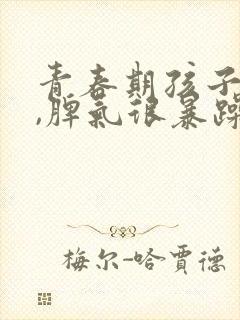 青春期孩子
,脾气很暴躁
梅尔-哈贾德